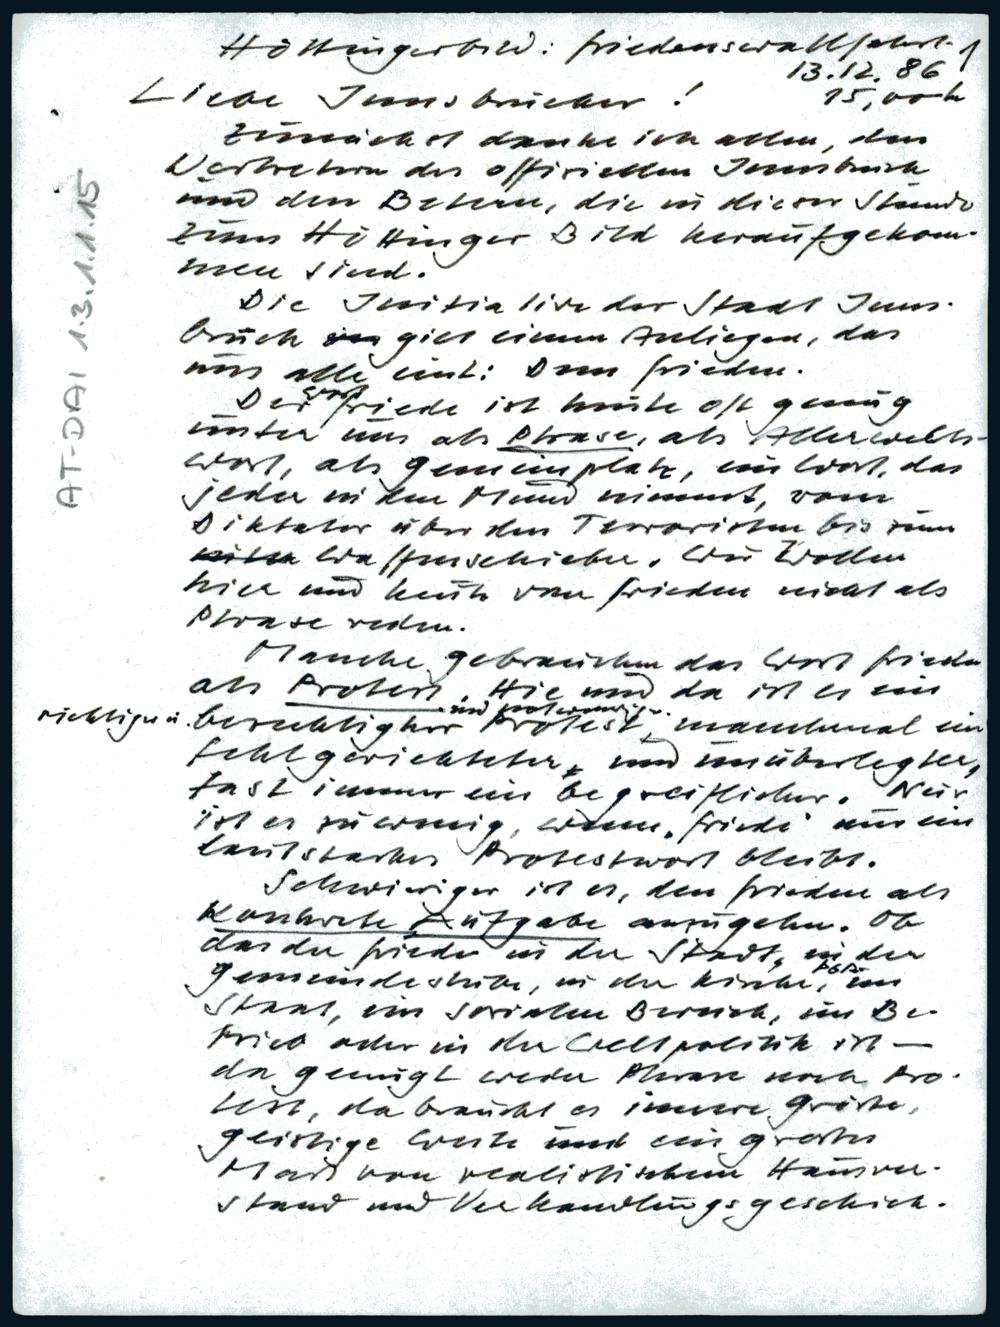 Höttingerbild: Friedenswallfahrt 1
13.12.86
15,00 h
Liebe Innsbrucker!
Zunächst danke ich allen, den
Vertretern des offiziellen Innsbruck
und den Betern, die in dieser Stunde
zum Höttinger Bild heraufgekom-
men sind.
Die Initiative der Stadt Inns-
bruck gilt einem Anliegen, das
uns alle eint: Dem Frieden.
Der Friede ist heute oft genug
unter uns als Phrase, als Allerwelts-
wort, als Gemeinplatz, ein Wort, das
jeder in den Mund nimmt, vom
Diktator über den Terroristen bis zum
Waffenschieber. Wir wollen
hier und heute vom Frieden nicht als
Phrase reden.
Manche gebrauchen das Wort Frieden
als Protest. Hie und da ist es ein
richtiger u. berechtigter und notwendiger Protest, manchmal ein
fehlgerichteter und unüberlegter,
fast immer ein begreiflicher. Nur
ist es zu wenig, wenn "Friede" nur ein
lautstarkes Protestwort bleibt.
Schwieriger ist es, den Frieden als
konkrete Aufgabe anzugehen. Ob
das der Friede in der Stadt, in der
Gemeindestube, in der Kirche, im
Staat, im sozialen Bereich, im Be-
trieb oder in der Weltpolitik ist —
da genügt weder Phrase noch Pro-
test, da braucht es innere Größe,
geistige Werte und ein großes
Maß von realistischem Hausver-
stand und Verhandlungsgeschick.
AT-DAI 1.3.1.1.15